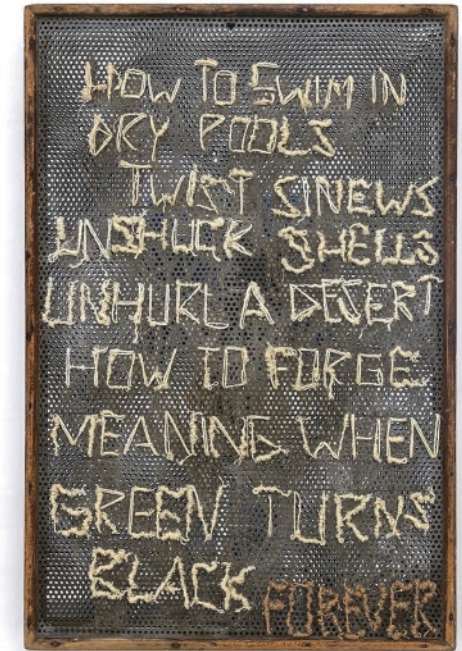 HOW TO SWIM IN
DRY POOLS
TWIST SINEWS
UNSHUCK SHELLS
UNHURL A DESERT
HOW TO FORGE
MEANING WHEN
GREEN TURNS
BLACK FOREVER